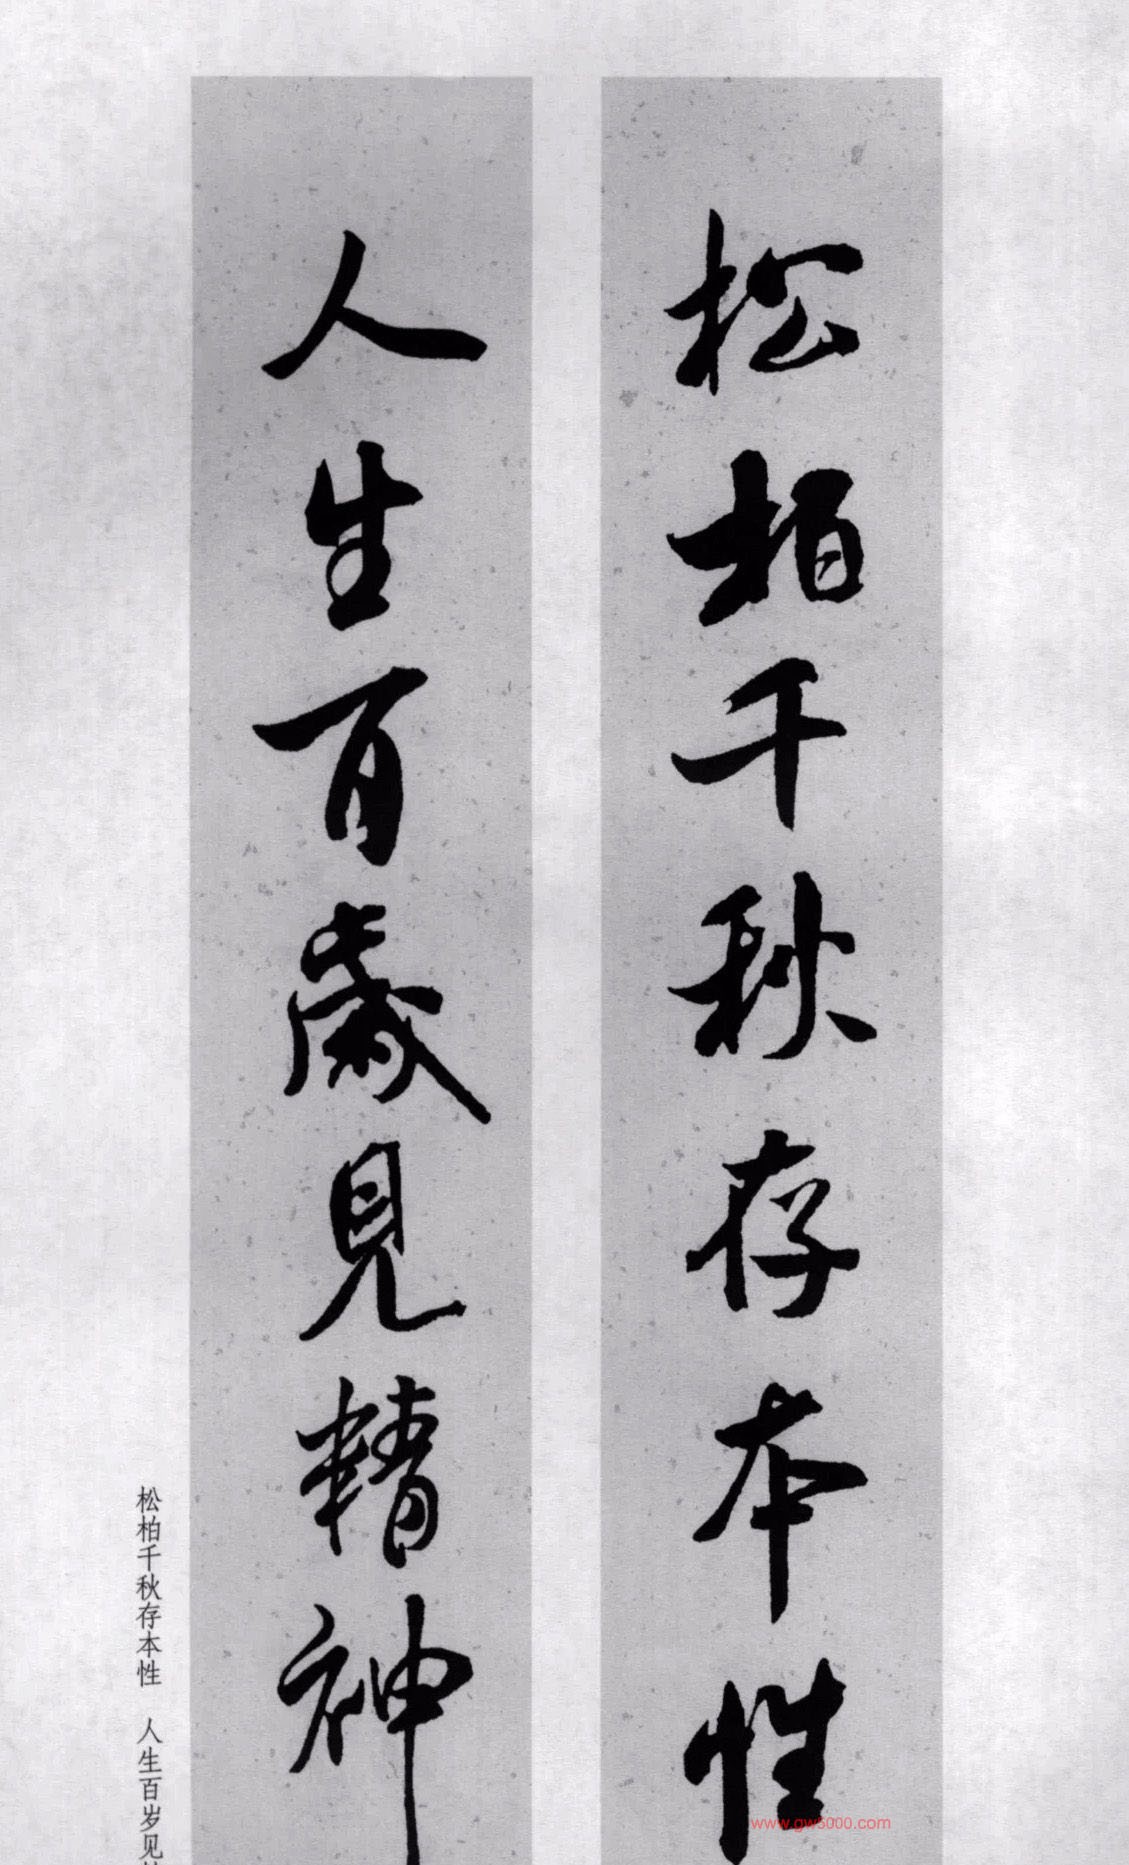 松柏千秋存本性
人生百歲見精神
松柏千秋存本性 人生百岁见
www.gw5000.com